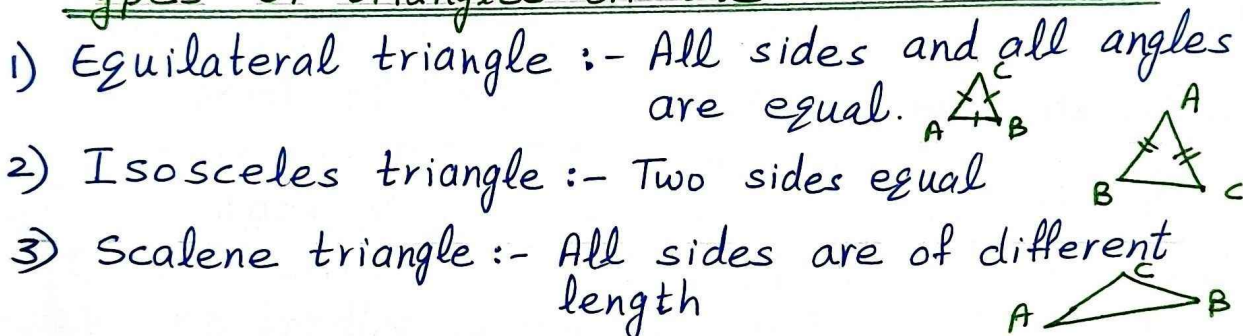 Types of triangles on the
1) Equilateral triangle :- All sides and all angles
are equal.
C
A B
2) Isosceles triangle :- Two sides equal
A
B C
3) Scalene triangle :- All sides are of different
length
C
A B